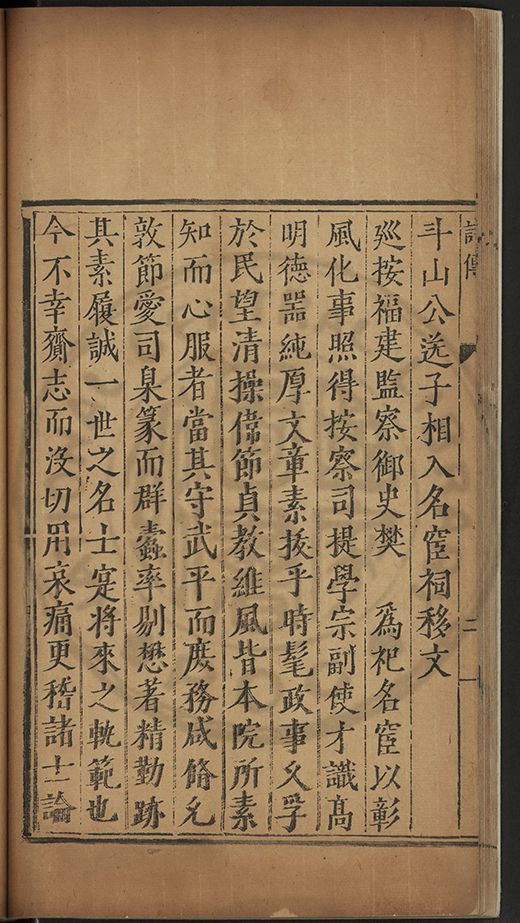 傳
二
斗山公送子相入名宦祠移文
廵按福建監察御史樊　為祀名宦以彰
風化事照得按察司提學宗副使才識髙
明德噐純厚文章素拔乎時髦政事久孚
於民望清操偉節貞教維風皆本院所素
知而心服者當其守武平而庻務咸脩允
敦節愛司臬篆而群蠹率剔懋著精勤跡
其素履誠一世之名士寔將來之軌範也
今不幸齎志而沒切用哀痛更稽諸士論